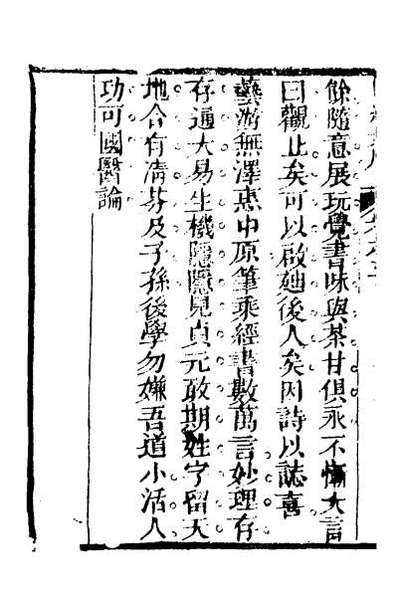 餘隨意展玩覺書味與茶甘俱永不慚大言
曰觀止矣可以啟廸後人矣因詩以誌喜
藝游無澤惠中原筆乘經書數萬言妙理存
存通大易生機隱隱見貞元敢期姓字留天
地合有清芬及子孫後學勿嫌吾道小活人
功可國醫論